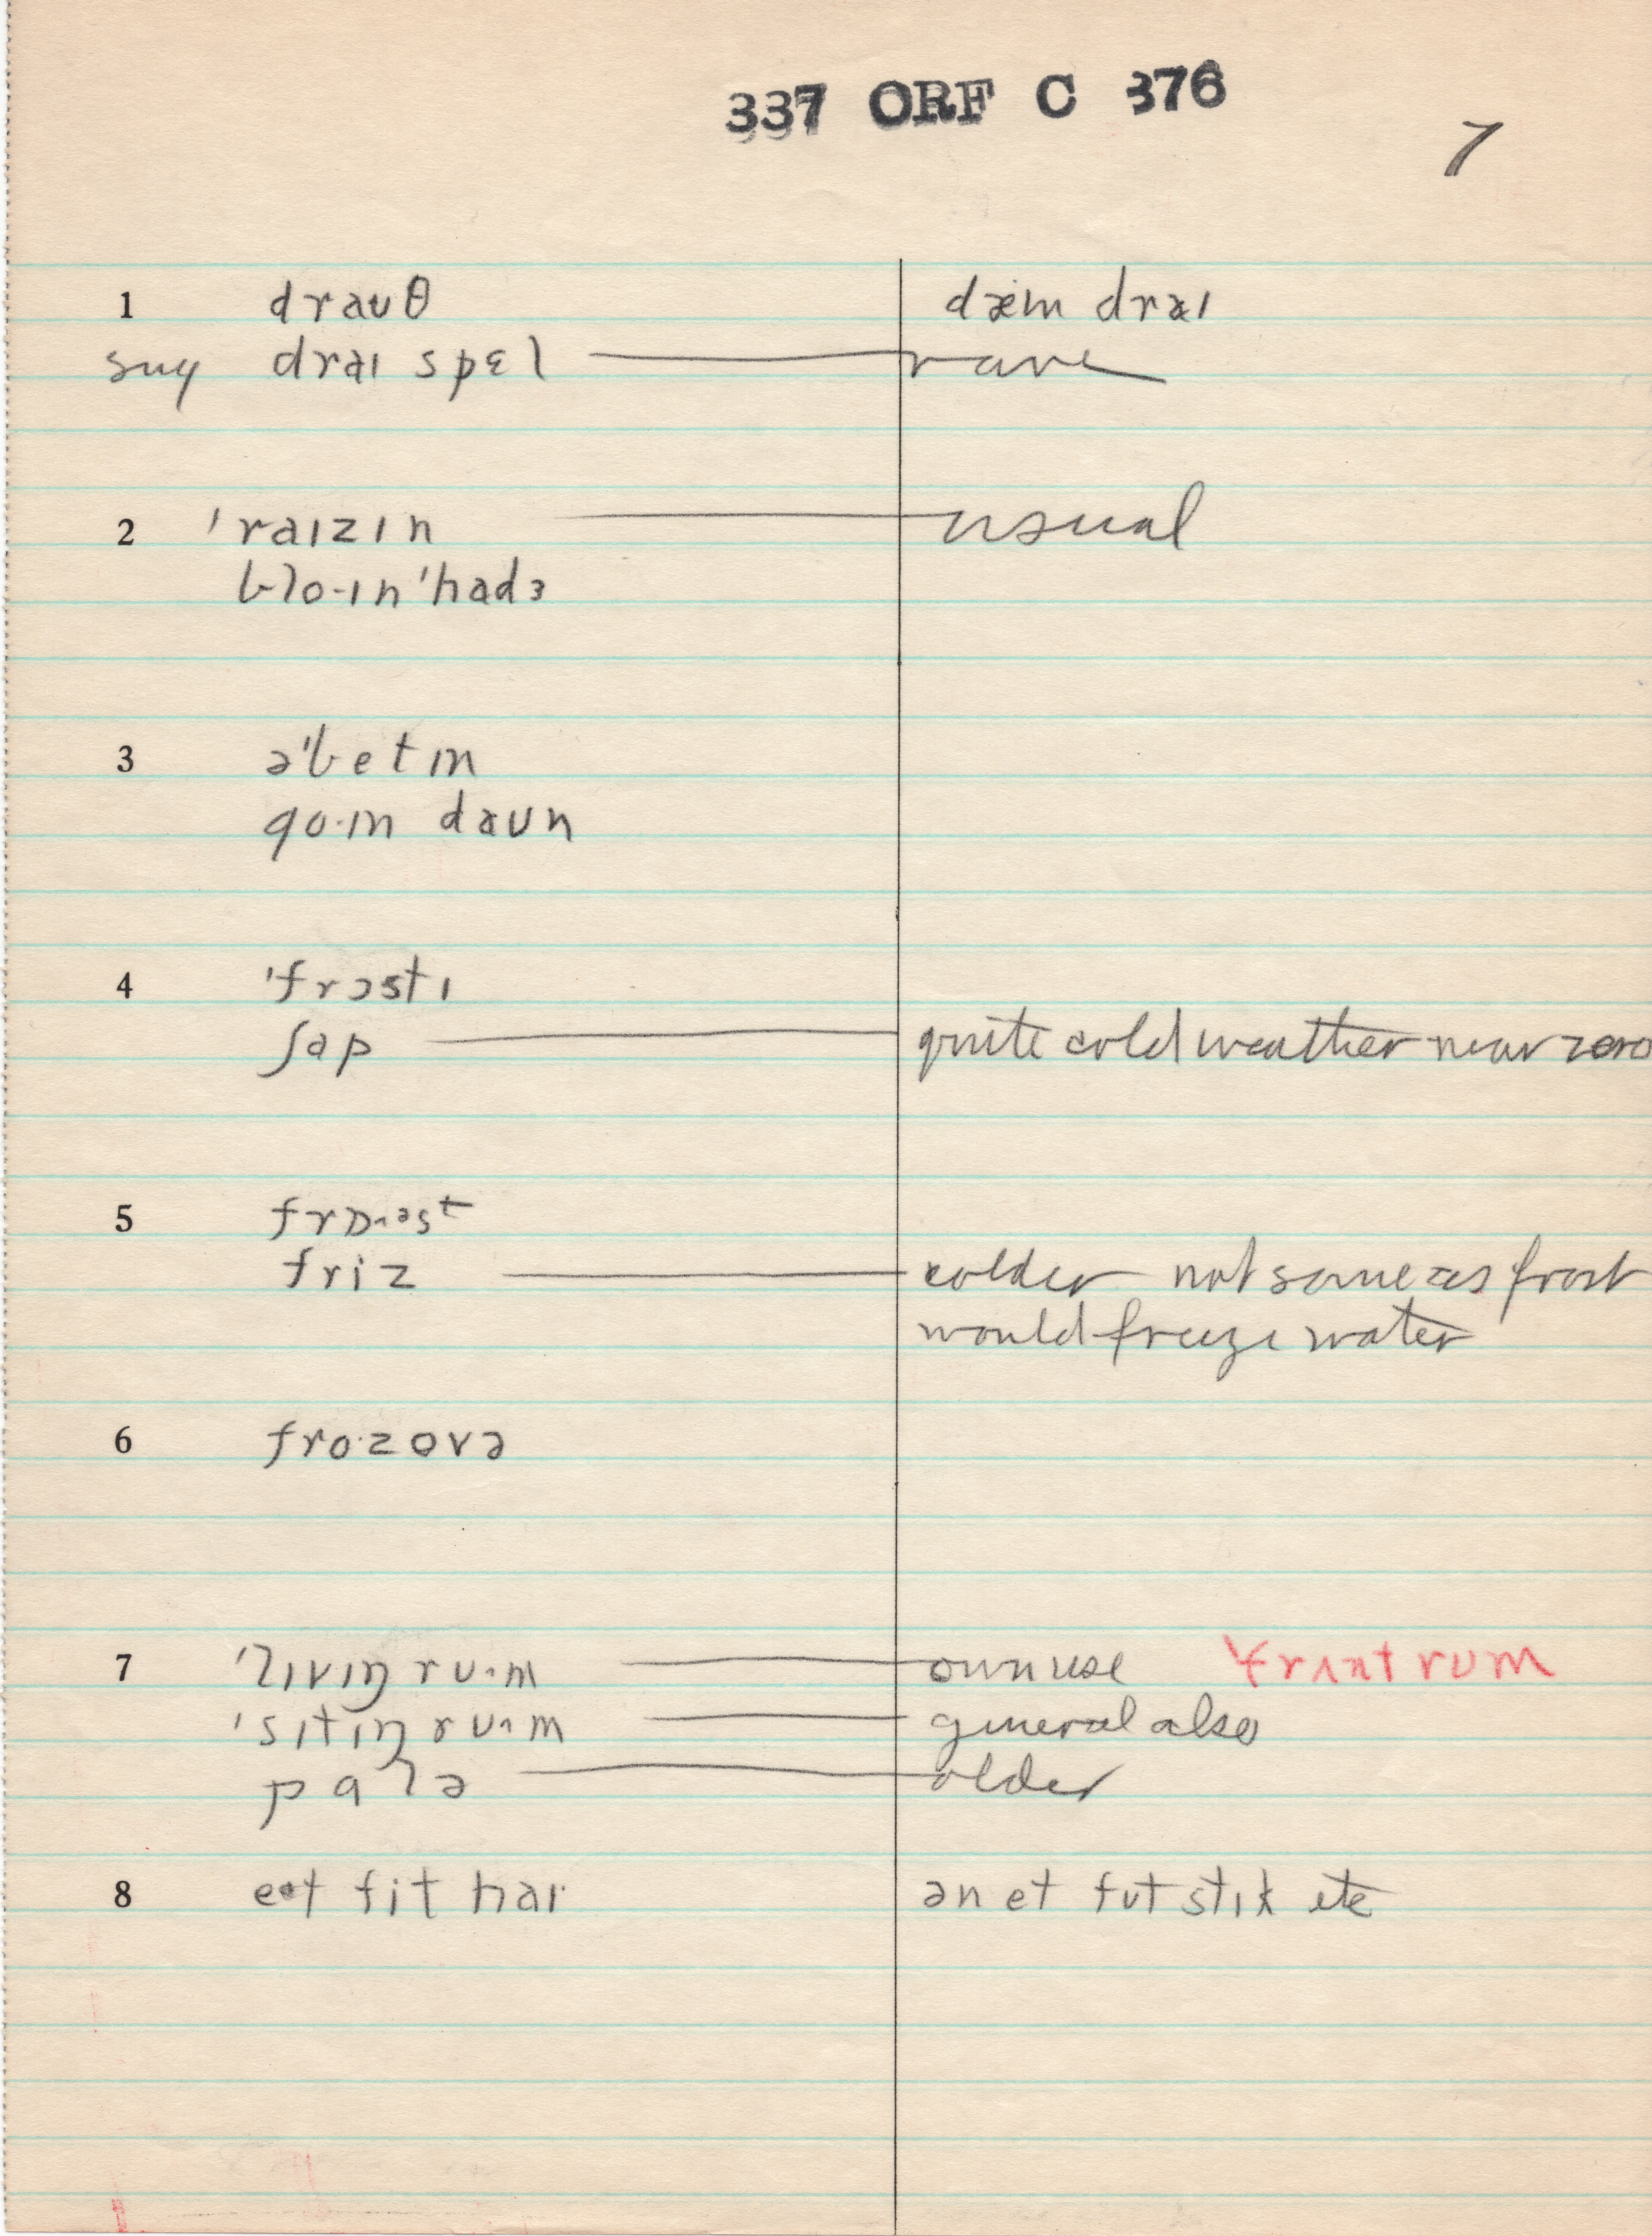 337 ORF C 376
7
1 drauθ dæm draɪ
sug draɪ spɛl — rare
2 ˈraɪzɪn — usual
blo·ɪnˈhadɜ
3 əˈbetɪn
go·ɪn daun
4 ˈfrɔstɪ
ʃap — quite cold weather near zero
5 frɒ·əst
friz — colder not same as frost
would freeze water
6 fro·zovə
7 ˈlɪvɪŋ ru·m — own use frʌnt rum
ˈsɪtɪŋ ru·m — general also
palə — older
8 et fit haɪ ən et fut stɪk etc